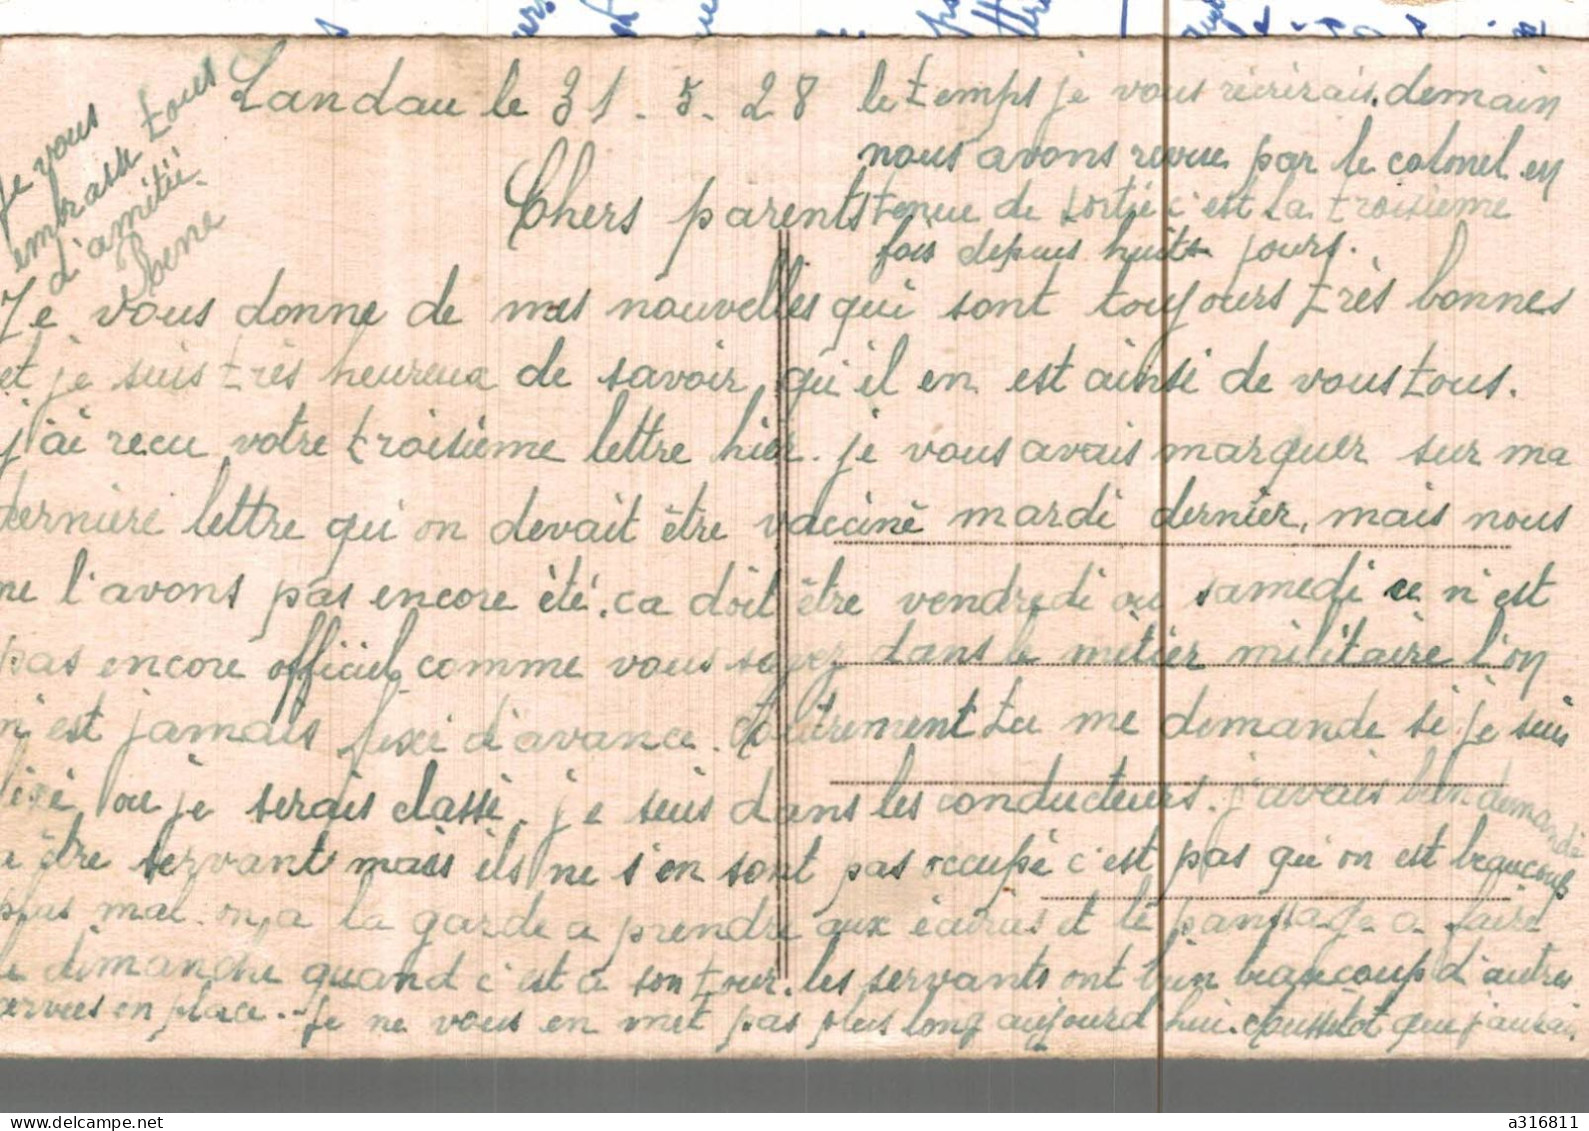 Landau le 31.5.28
Chers parents
Je vous donne de mes nouvelles qui sont toujours très bonnes
et je suis très heureux de savoir qu'il en est ainsi de vous tous.
j'ai recu votre troisième lettre hier. je vous avais marquer sur ma
derniere lettre qu'on devait être vacciné mardi dernier, mais nous
ne l'avons pas encore été. ca doit être vendredi ou samedi ce n'est
pas encore officiel comme vous dans le métier militaire l'on
n'est jamais fixé d'avance. Autrement tu me demande si je suis
fixé ou je serais classé. je suis dans les conducteurs. j'avais bien demandé
a être servant mais ils ne s'en sont pas occupé c'est pas qu'on est beaucoup
plus mal on a la garde a prendre aux écuries et le pansage a faire
le dimanche quand c'est a son tour. les servants ont bien beaucoup d'autres
en place. Je ne vous en met pas plus long aujourd'hui. Aussitôt que j'aurais
le temps je vous récrirais. demain
nous avons revue par le colonel en
tenue de sortie c'est la troisieme
fois depuis huits jours.
Je vous
embrasse tous
d'amitié.
a316811